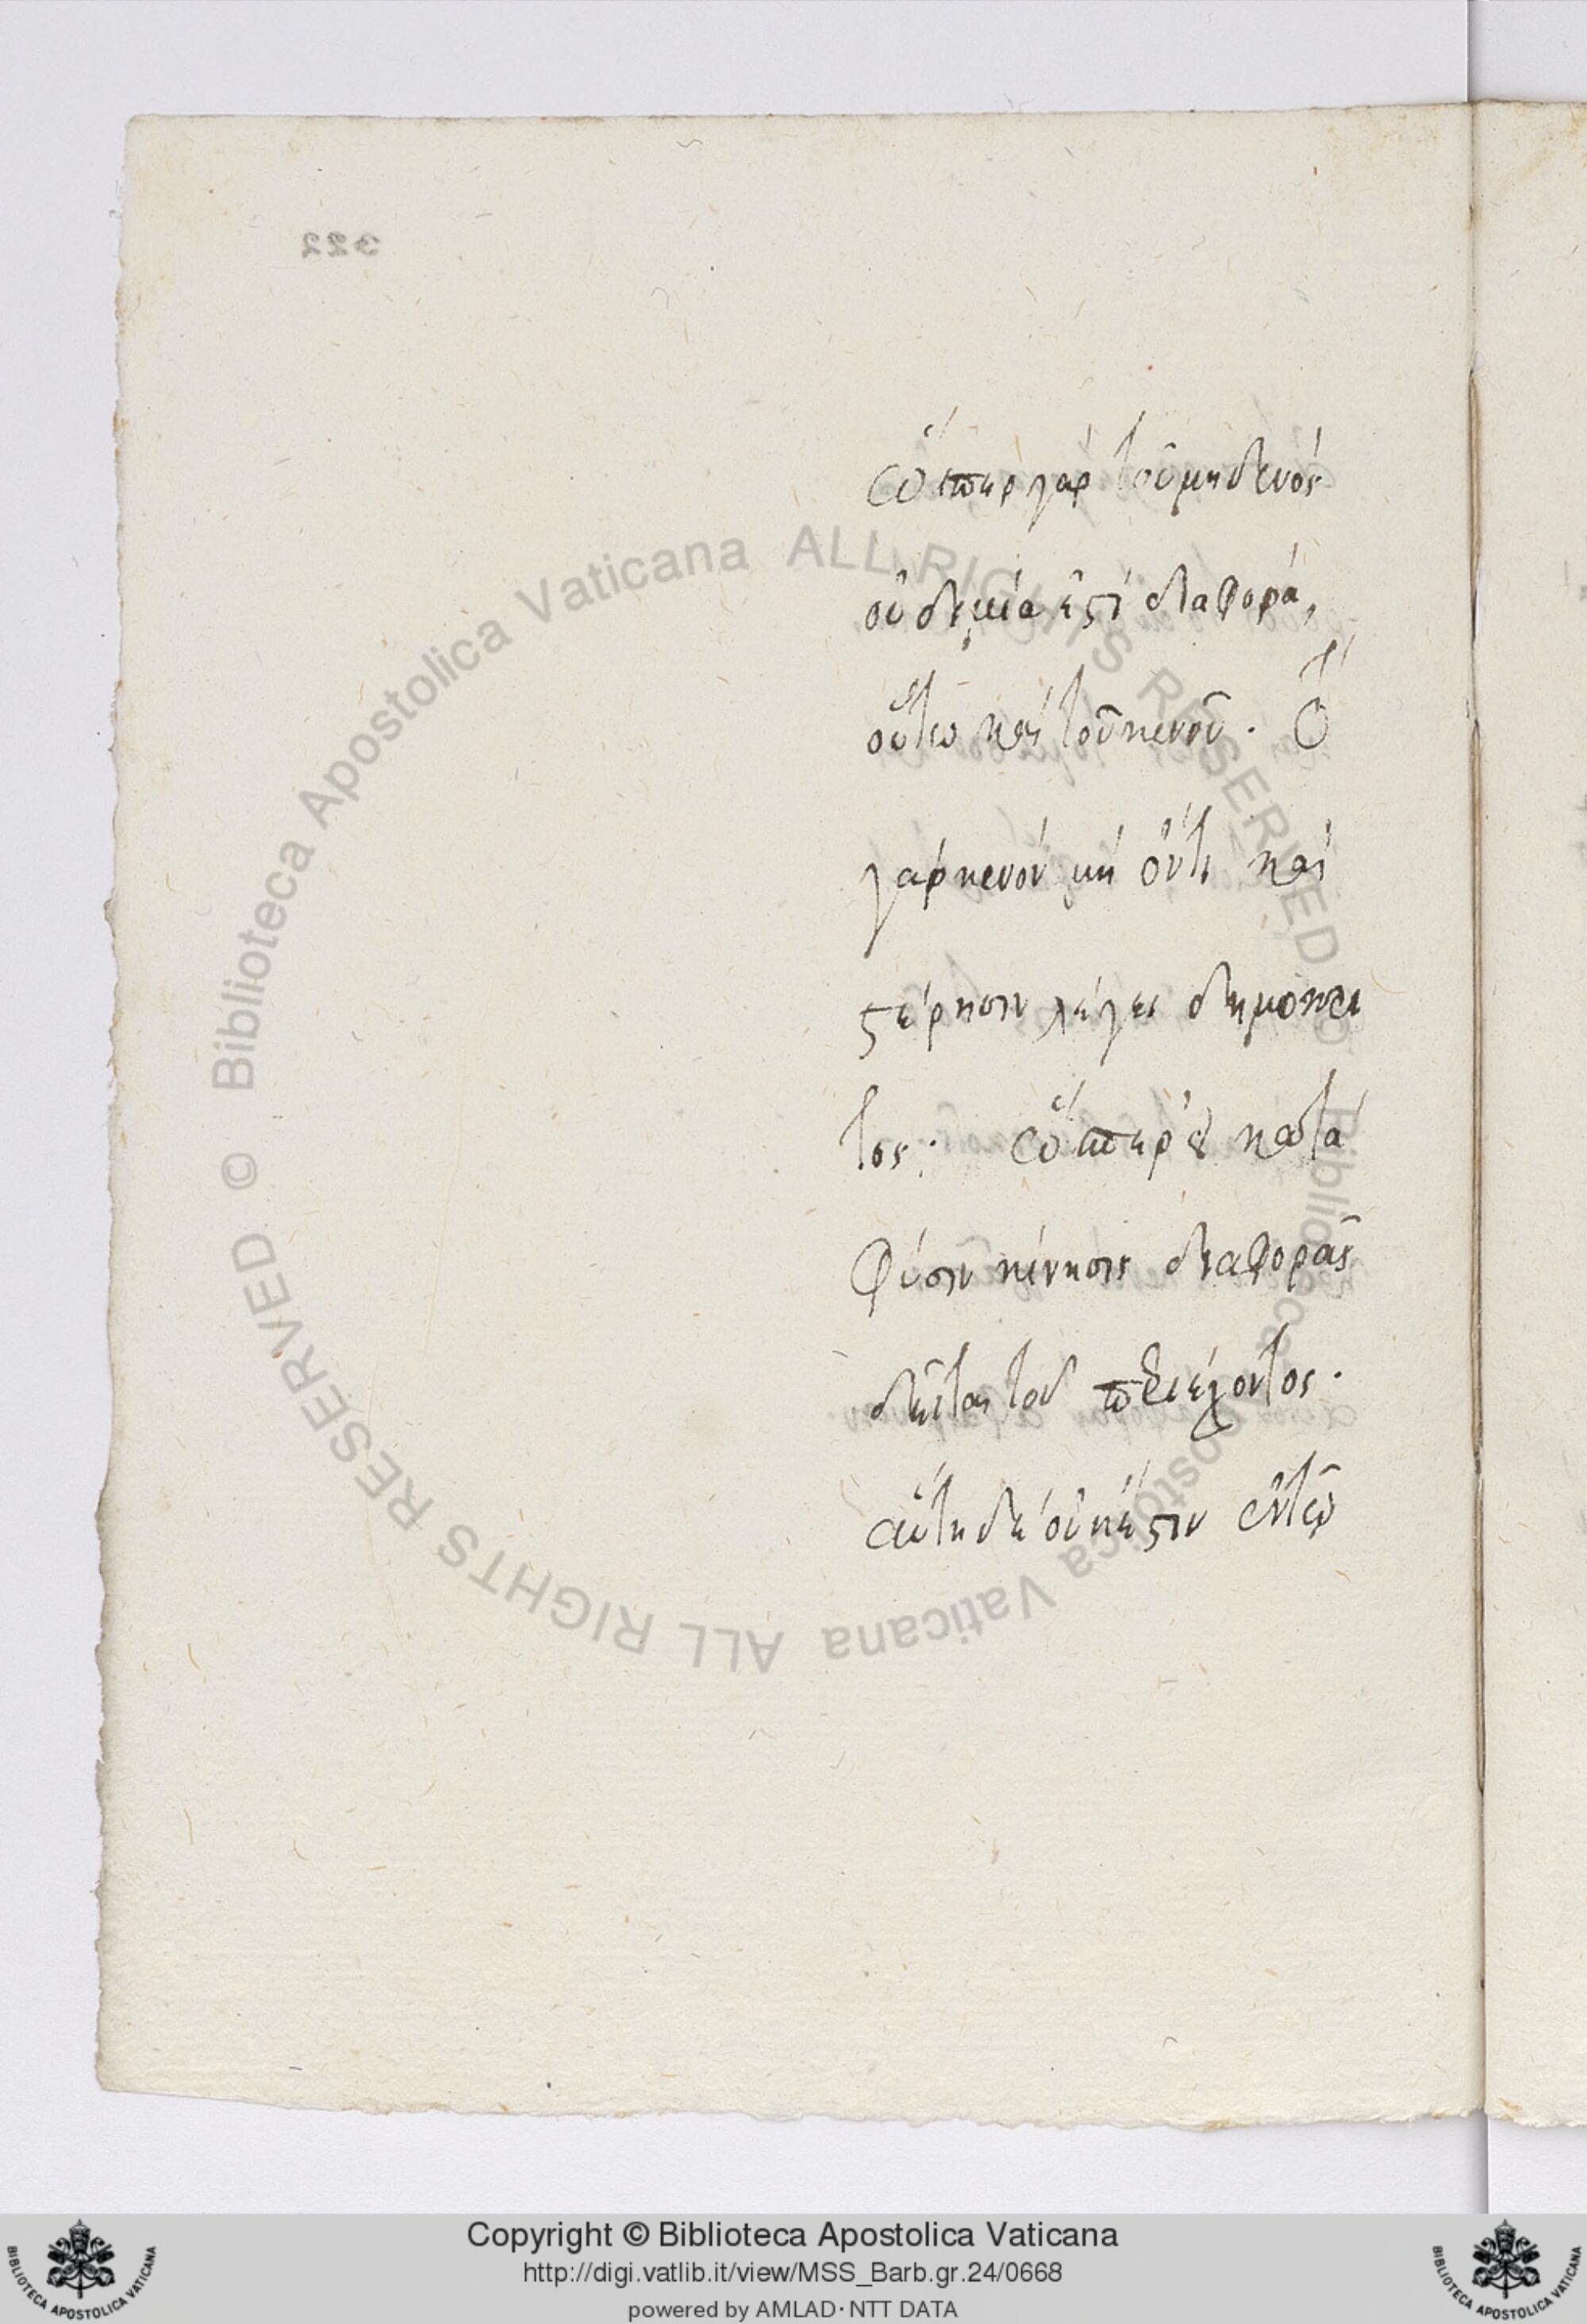 322
ὥσπερ γὰρ τοῦ μηδενὸς
οὐδεμία ἐστὶ διαφορά,
οὕτω καὶ τοῦ κενοῦ. Τὸ
γὰρ κενὸν μὴ ὄν τι καὶ
στέρησιν λέγει δημόκρι
τος: ὥσπερ ἡ κατὰ
φύσιν κίνησις διαφορᾶς
δεῖται τοῦ περιέχοντος.
αὕτη δὲ οὐκ ἔστιν ἐν τῷ
© Biblioteca Apostolica Vaticana ALL RIGHTS RESERVED
© Biblioteca Apostolica Vaticana ALL RIGHTS RESERVED
Copyright © Biblioteca Apostolica Vaticana
http://digi.vatlib.it/view/MSS_Barb.gr.24/0668
powered by AMLAD·NTT DATA
BIBLIOTECA APOSTOLICA VATICANA
BIBLIOTECA APOSTOLICA VATICANA